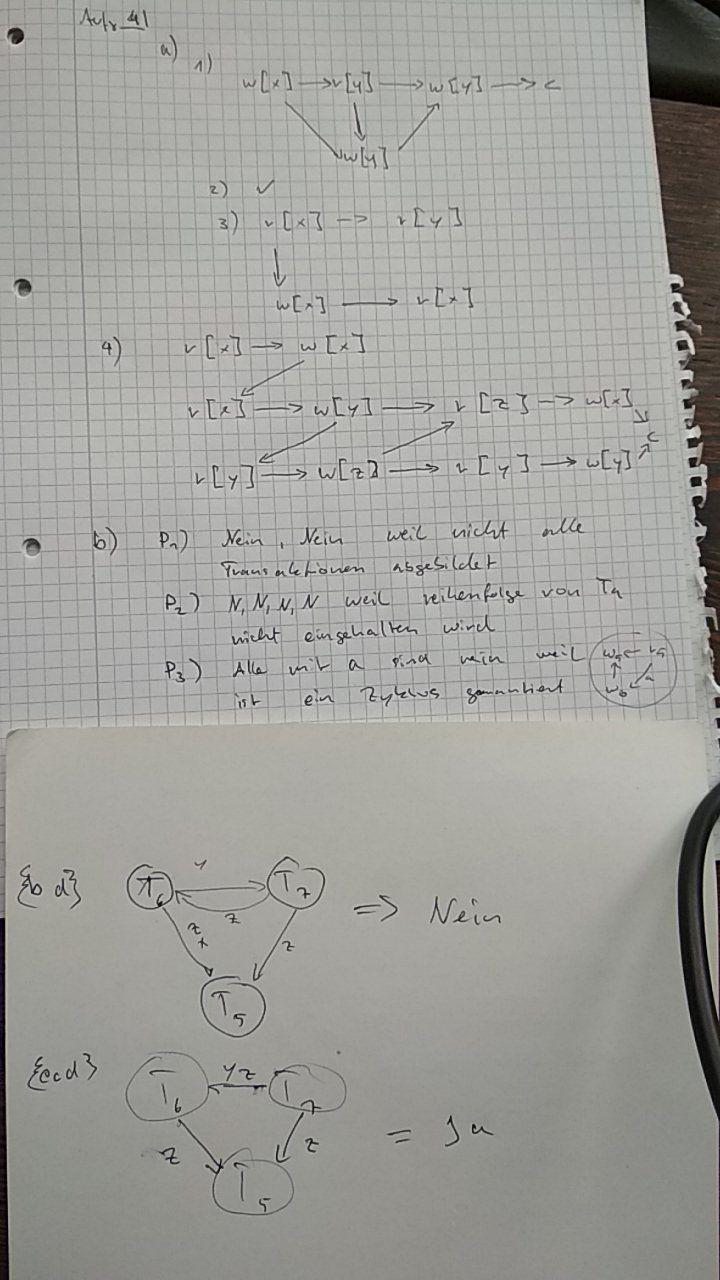 Aufg 41
a)
1)
w[x] → r[y] → w[y] → c
w[y]
2) ✓
3) r[x] → r[y]
w[x] → r[x]
4) r[x] → w[x]
r[x] → w[y] → r[z] → w[x]
c
r[y] → w[z] → r[y] → w[y]
b) P₁) Nein, Nein weil nicht alle
Transaktionen abgebildet
P₂) N, N, N, N weil reihenfolge von
nicht eingehalten wird
P₃) Alle mit a sind nein weil
ist ein Zyklus garantiert
{b d} T₆ y T₇ ⇒ Nein
z
z x z
T₅
T₆ yz T₇
z z = Ja
T₅